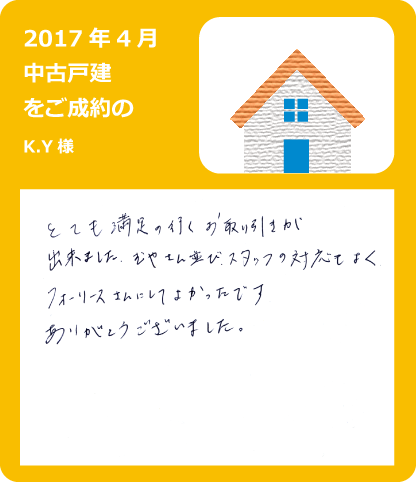 2017年4月
中古戸建
をご成約の
K.Y様
とても満足の行くお取り引きが
出来ました。 さん並び、スタッフの対応もよく
フォーリースさんにしてよかったです
ありがとうございました。